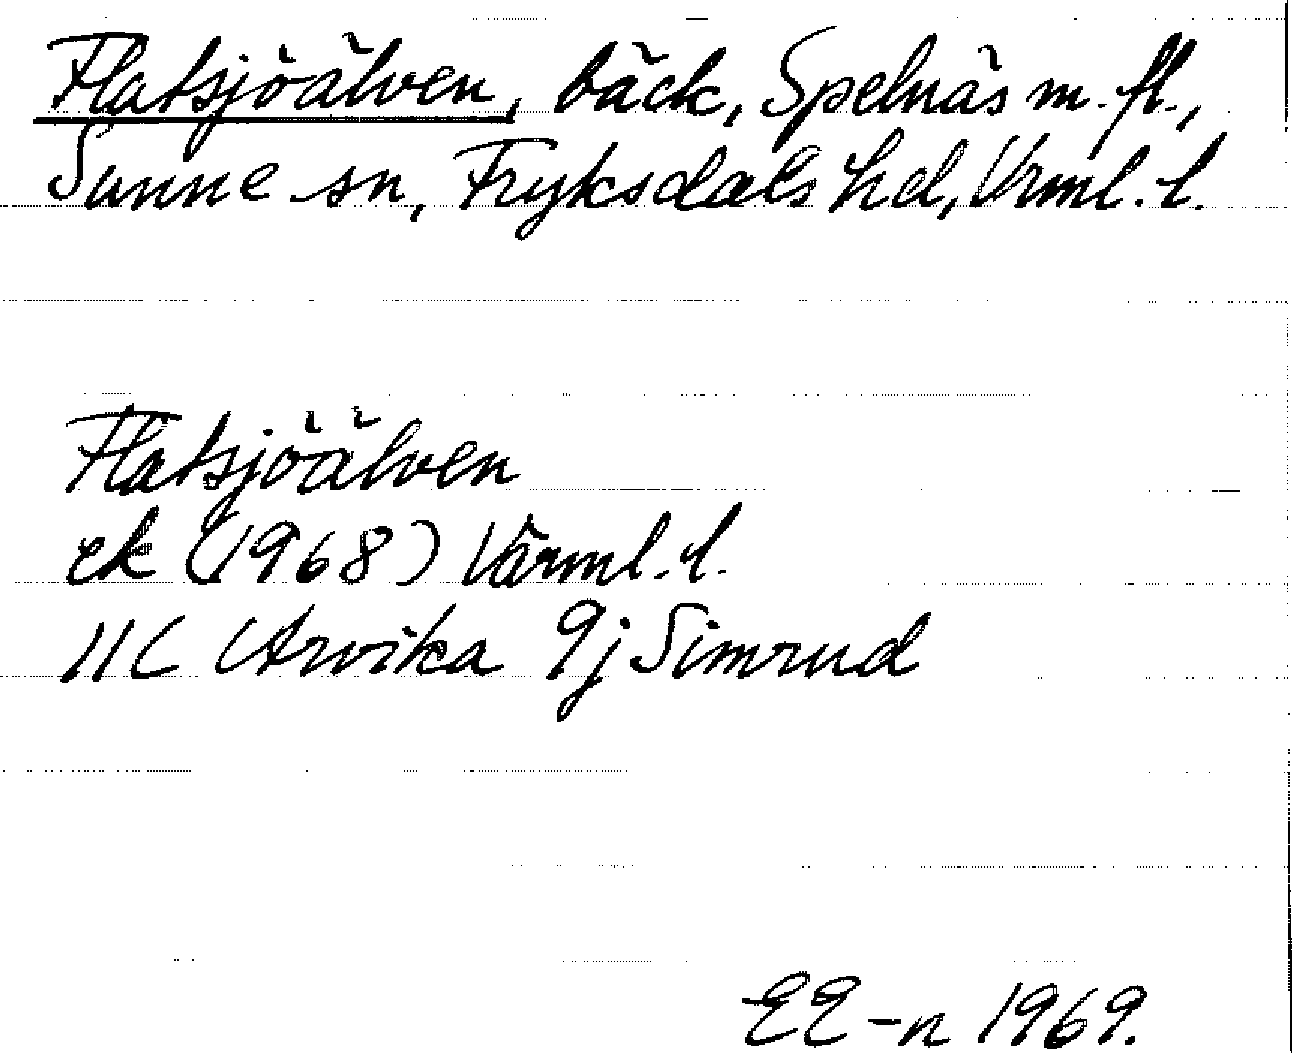 Flatsjöälven, bäck, Spelnäs m. fl.,
Sunne sn, Fryksdals hd, Vrml. l.
Flatsjöälven
ek (1968) Värml. l.
11C Arvika 9j Simrud
EE-n 1969.